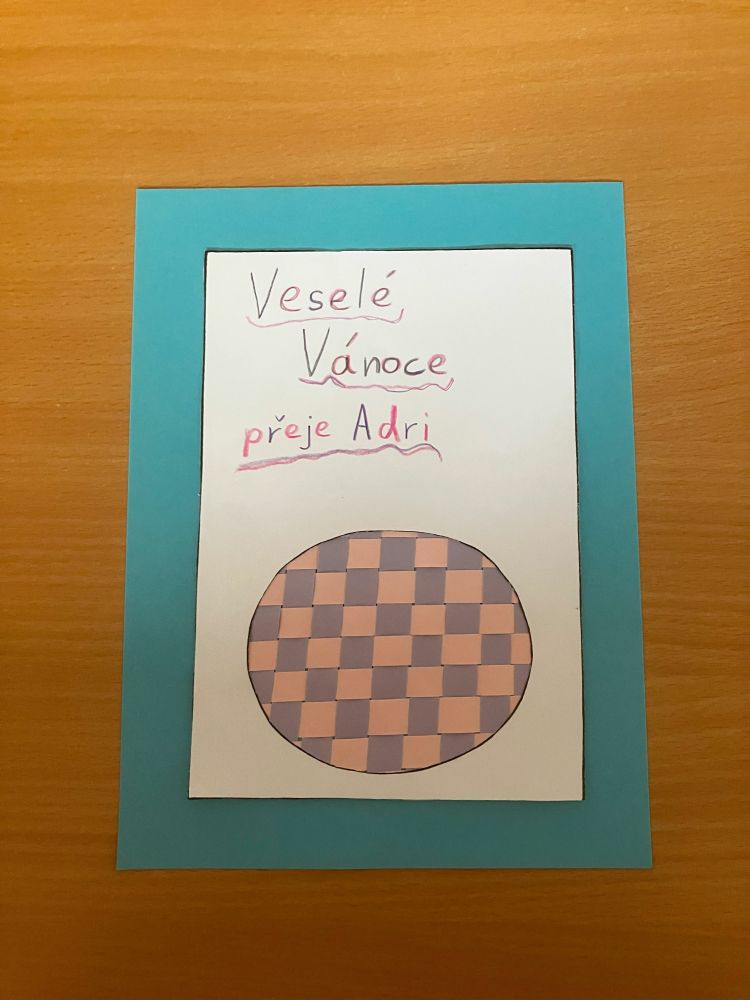 Veselé
Vánoce
přeje Adri